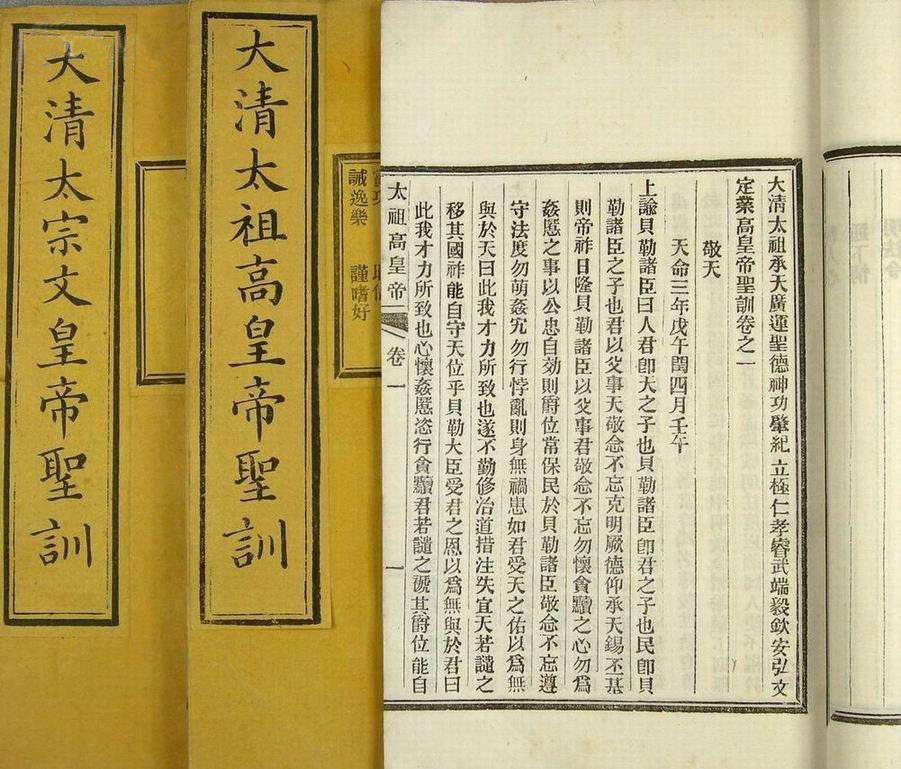 大清太祖承天廣運聖德神功肇紀立極仁孝睿武端毅欽安弘文
定業高皇帝聖訓卷之一
敬天
天命三年戊午閏四月壬午
上諭貝勒諸臣曰人君卽天之子也貝勒諸臣卽君之子也民卽貝
勒諸臣之子也君以父事天敬念不忘克明厥德仰承天錫丕基
則帝祚日隆貝勒諸臣以父事君敬念不忘勿懷貪黷之心勿爲
姦慝之事以公忠自効則爵位常保民於貝勒諸臣敬念不忘遵
守法度勿萌姦宄勿行悖亂則身無禍患如君受天之佑以爲無
與於天曰此我才力所致也遂不勤修治道措注失宜天若譴之
移其國祚能自守天位乎貝勒大臣受君之恩以爲無與於君曰
此我才力所致也心懷姦慝恣行貪黷君若譴之褫其爵位能自
太祖高皇帝 卷一 一
誡逸樂 謹嗜好
大清太祖高皇帝聖訓
大清太宗文皇帝聖訓